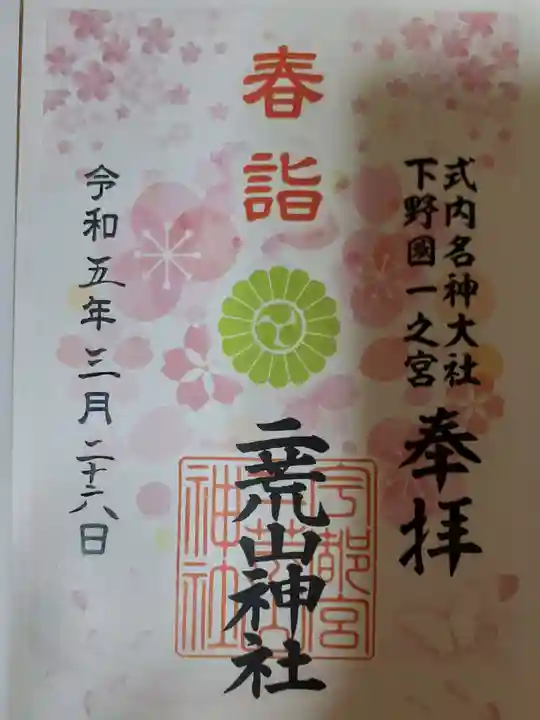 式内名神大社
下野國一之宮
奉拝
春詣
二荒山神社
宇都宮
二荒山
神社
令和五年三月二十六日